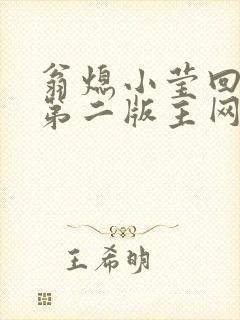 翁熄小莹回
第二版主网
王希明